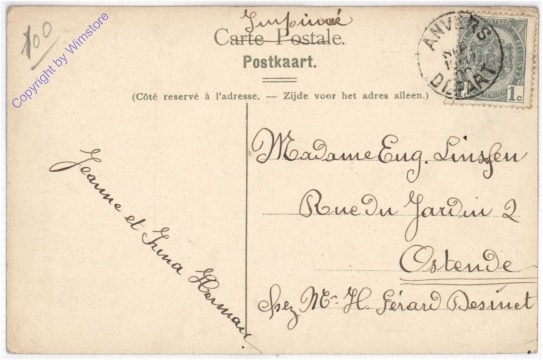 100
Copyright by Wimstore
Imprimé
Carte Postale.
Postkaart.
(Côté reservé à l'adresse. — Zijde voor het adres alleen.)
ANVERS
DEPART
1c
Madame Eug. Linssen
Rue du Jardin 2
Ostende
chez Mr. H. Gérard Desmet
Jeanne et Irma Herman.